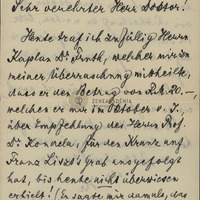 Sehr verehrter Herr Doktor!
Heute traf ich zufällig Herrn
Kaplan Dr. Truth, welcher mir zu
meiner Überraschung mittheilte,
dass er den Betrag von R.M. 20.—
welchen er mir im Oktober v. J.
über Empfehlung des Herrn Prof.
Dr. für den Kranz auf
Franz Liszt's Grab ausgefolgt
hat, bis heute nicht überwiesen
erhielt! Er sagte mir damals, das
ZENEAKADÉMIA